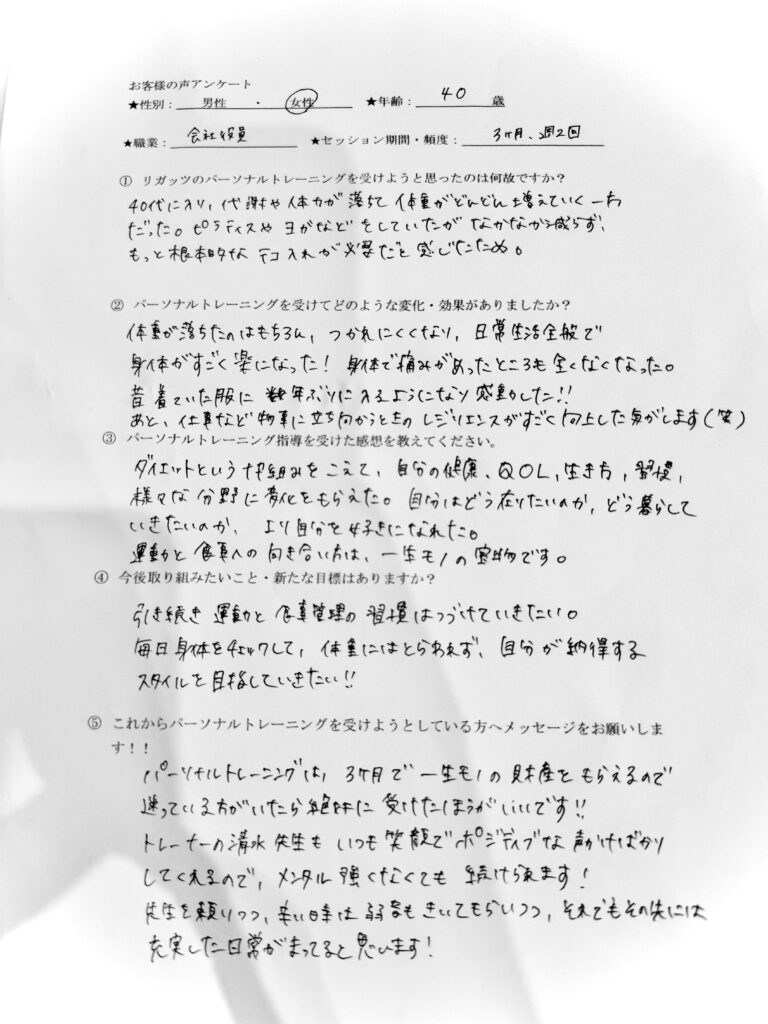 お客様の声アンケート
★性別： 男性 ・ 女性 ★年齢： 40 歳
★職業： 会社役員 ★セッション期間・頻度： 3ヶ月、週2回
① リガッツのパーソナルトレーニングを受けようと思ったのは何故ですか？
40代に入り、代謝や体力が落ちて体重がどんどん増えていく一方
だった。ピラティスやヨガなどをしていたがなかなか減らず、
もっと根本的なテコ入れが必要だと感じたため。
② パーソナルトレーニングを受けてどのような変化・効果がありましたか？
体重が落ちたのはもちろん、つかれにくくなり、日常生活全般で
身体がすごく楽になった！身体で痛みがあったところも全くなくなった。
昔着ていた服に数年ぶりに入るようになり感動した!!
あと、仕事など物事に立ち向かうときのレジリエンスがすごく向上した気がします(笑)
③ パーソナルトレーニング指導を受けた感想を教えてください。
ダイエットという枠組みをこえて、自分の健康、QOL、生き方、習慣、
様々な分野に変化をもらえた。自分はどう在りたいのか、どう暮らして
いきたいのか、より自分を好きになれた。
運動と食事への向き合い方は、一生モノの宝物です。
④ 今後取り組みたいこと・新たな目標はありますか？
引き続き運動と食事管理の習慣はつづけていきたい。
毎日身体をチェックして、体重にはとらわれず、自分が納得する
スタイルを目指していきたい!!
⑤ これからパーソナルトレーニングを受けようとしている方へメッセージをお願いしま
す！！
パーソナルトレーニングは、3ヶ月で一生モノの財産をもらえるので
迷っている方がいたら絶対に受けたほうがいいです!!
トレーナーの清水先生もいつも笑顔でポジティブな声かけばかり
してくれるので、メンタル強くなくても続けられます！
先生を頼りつつ、辛い時は弱音もきいてもらいつつ、それでもその先には
充実した日常がまってると思います！